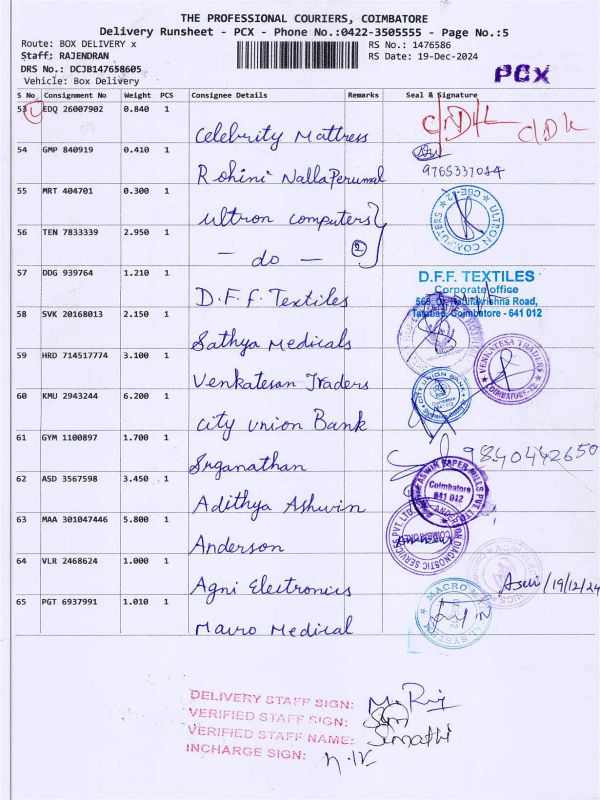 THE PROFESSIONAL COURIERS, COIMBATORE
Delivery Runsheet - PCX - Phone No.:0422-3505555 - Page No.:5
Route: BOX DELIVERY x
Staff: RAJENDRAN
DRS No.: DCJB147658605
Vehicle: Box Delivery
RS No.: 1476586
RS Date: 19-Dec-2024
PCX
S No Consignment No Weight PCS Consignee Details Remarks Seal & Signature
53 EDQ 26007902 0.840 1 Celebrity Mattress
54 GMP 840919 0.410 1 Rohini NallaPerumal
55 MRT 404701 0.300 1 ultron computers ULTRON COMPUTERS CBE-12
56 TEN 7833339 2.950 1 — do — 2
57 DDG 939764 1.210 1 D.F.F. Textiles D.F.F. TEXTILES
Corporate office
Tatabad, Coimbatore - 641 012
58 SVK 20168013 2.150 1 Sathya Medicals
59 HRD 714517774 3.100 1 Venkatesan Traders VENKATESA TRADERS COIMBATORE
60 KMU 2943244 6.200 1 city union Bank CITY UNION BANK
61 GYM 1100897 1.700 1 Srganathan 9840442650
62 ASD 3567598 3.450 1 Adithya Ashwin ASWIN PAPER MILLS PVT LTD Coimbatore 641 012
63 MAA 301047446 5.800 1 Anderson DIAGNOSTIC SERVICES PVT. LTD.
64 VLR 2468624 1.000 1 Agni Electronics 19/12/24
65 PGT 6937991 1.010 1 Macro Medical MACRO
DELIVERY STAFF SIGN:
VERIFIED STAFF SIGN:
VERIFIED STAFF NAME: Sumathi
INCHARGE SIGN: